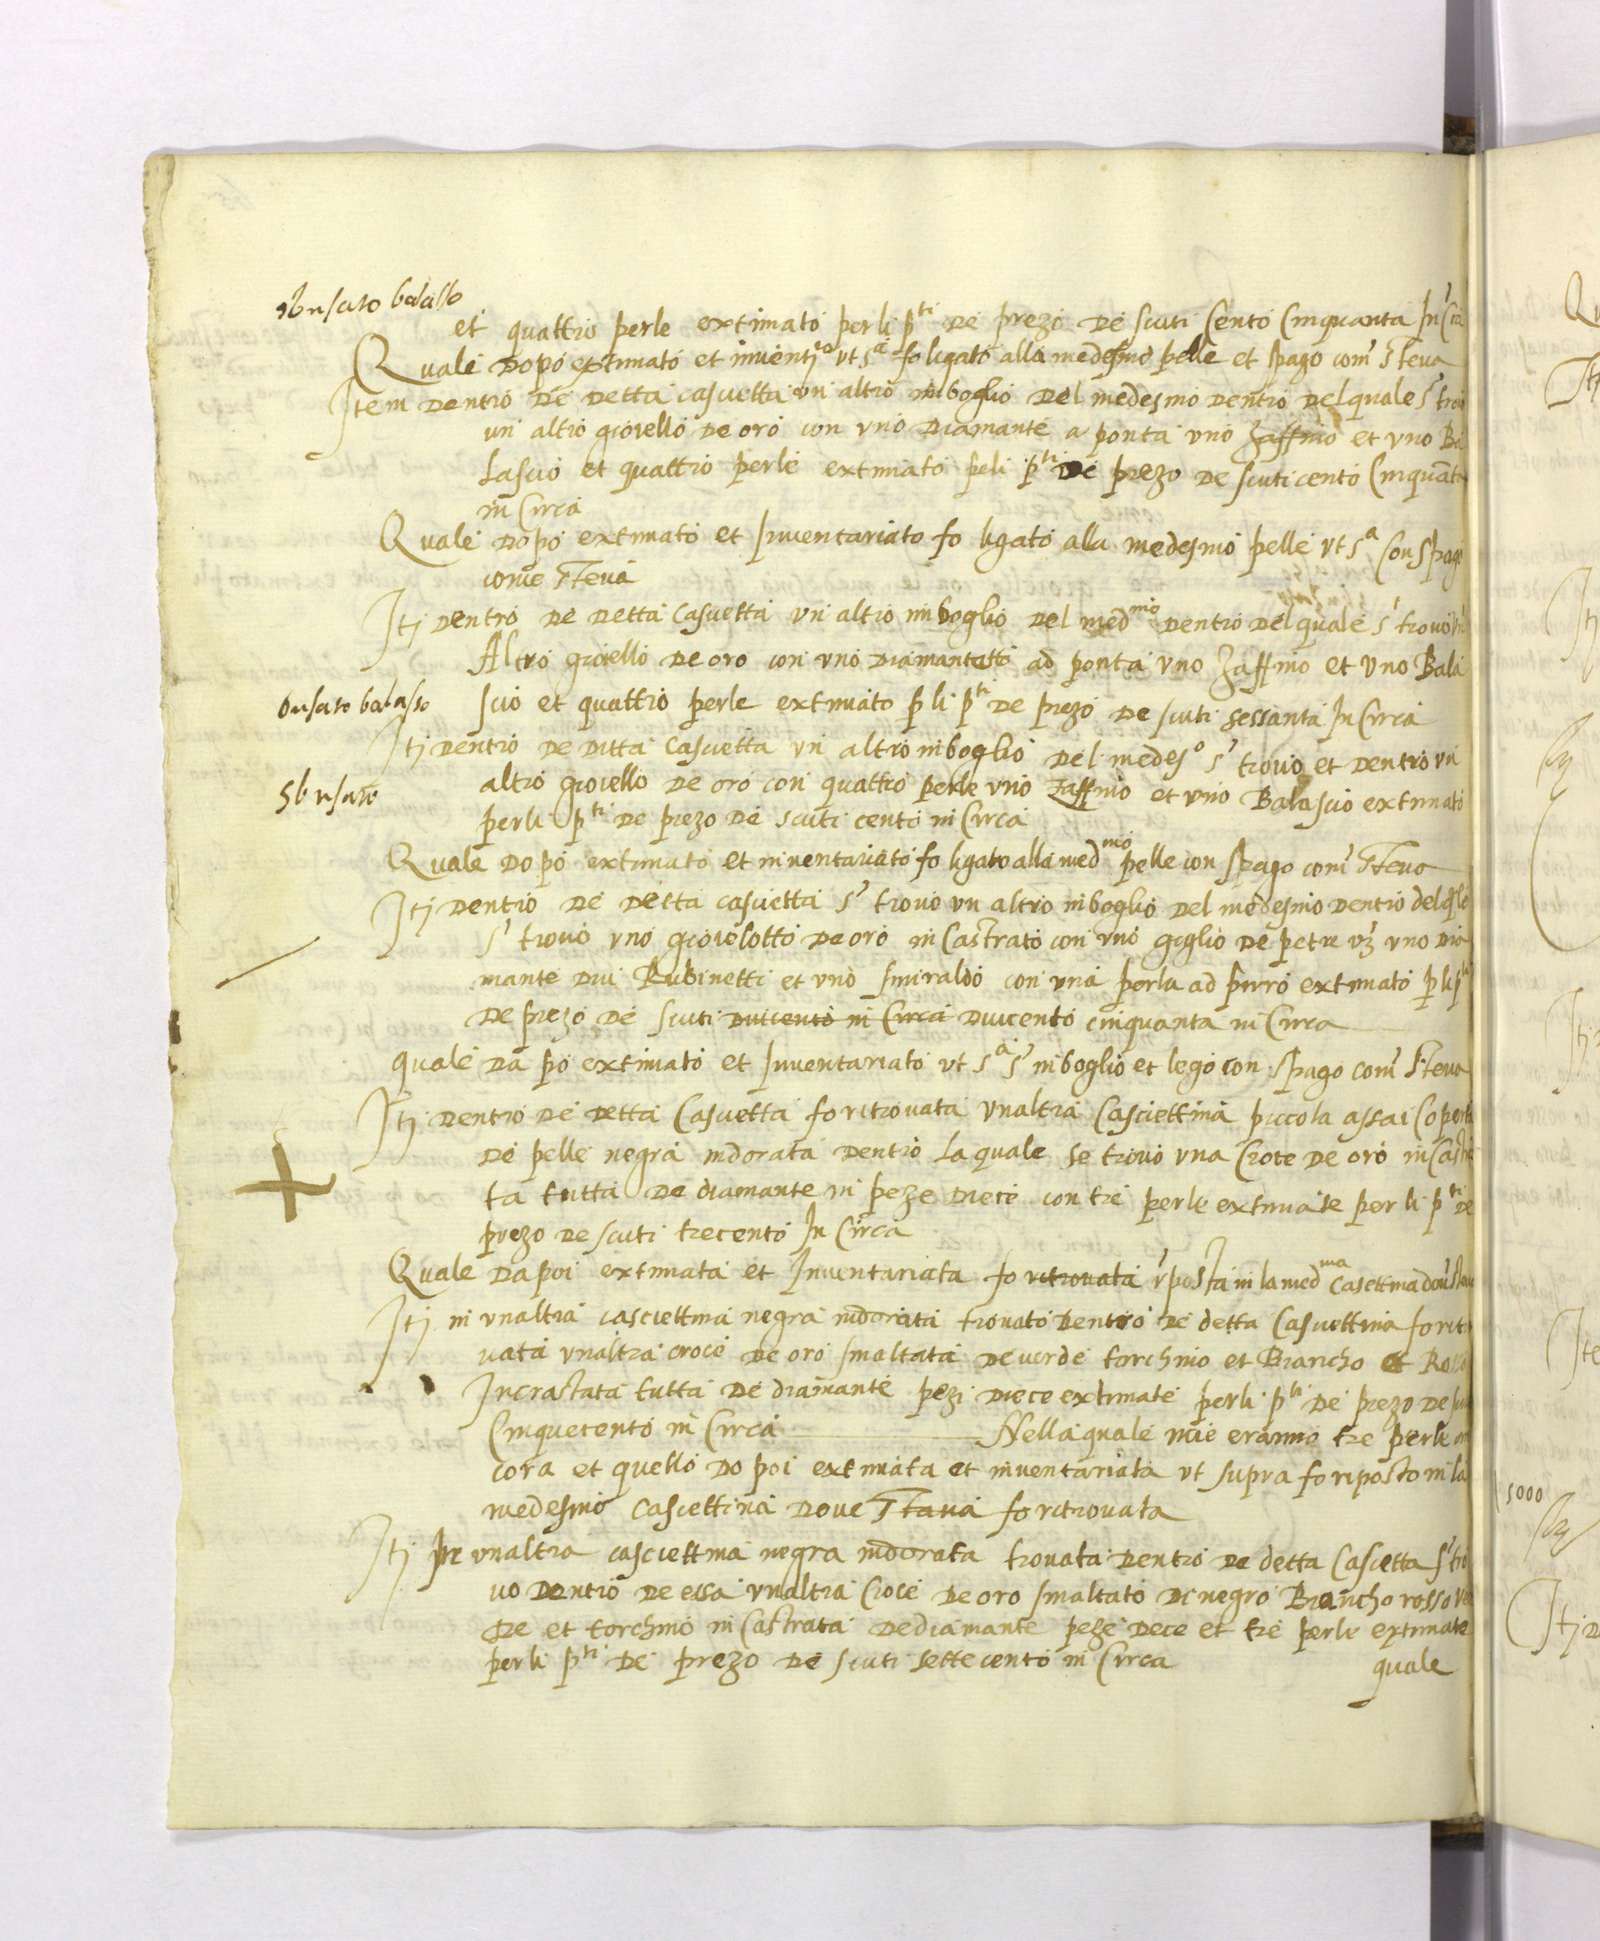 sbusato balasso
et quattro perle extimato perli p.ti de prezo de scuti cento cinquanta In Circa
Quale dopo extimato et inventr.to ut s.a fo ligato alla medesmo pelle et spago com steva
Item dentro de detta casuetta un altro inboglio del medesmo dentro del quale s' trovo
un altro gioiello de oro con uno diamante a ponta uno zaffino et uno Ba
lascio et quattro perle extimato peli p.ti de prezo de scuti cento Cinquata
in Circa
Quale dopo extimato et Inventariato fo ligato alla medesmo pelle ut s.a Con Spago
come steva
Itj dentro de detta casuetta un altro inboglio del med.mo dentro del quale s' trovo
Altro gioiello de oro con uno diamantetto ad ponta uno zaffino et uno Bala
busato balasso
scio et quattro perle extimato p li p.ti de prezo de scuti sessanta In Circa
Itj dentro de ditta casuetta un altro inboglio del medes.o s' trovo et dentro un
altro gioiello de oro con quattro perle uno zaffino et uno Balascio extimato
sbusato
perli p.ti de prezo de scuti cento in Circa
Quale dopo extimato et inventariato fo ligato alla med.mo pelle con spago com steva
Itj dentro de detta casuetta s' trovo un altro inboglio del medesmo dentro del qle
s' trovo uno gioielotto de oro in Castrato con uno giglio de petre uz uno dia
mante dui Rubinetti et uno smiraldo con una perla ad pirro extimato p li p.ti
de prezo de scuti duicento in Circa duicento cinquanta in Circa
quale da po extimato et Inventariato ut s.a s' inboglio et lego con spago com steva
Itj dentro de detta Casuetta fo ritrovata unaltra Casciettina piccola assai Coperta
de pelle negra indorata dentro la quale se trovo una Croce de oro in Castra
ta tutta de diamante in peze diece con tre perle extimate per li p.ti de
prezo de scuti trecento In Circa
Quale dapoi extimata et Inventariata fo ritrovata r'posta in la med.ma Casettina dov' stava
Itj in unaltra casciettina negra indorata trovato dentro de detta Casuettina fo ritro
vata unaltra croce de oro smaltata de verde torchino et Biancho et Rosso
Incrastata tutta de diamante pezi diece extimate perli p.ti de prezo de scuti
Cinquecento in Circa Nella quale nce eranno tre perle an
cora et quello dopoi extimata et inventariata ut supra fo riposto in la
medesmo casciettina dove stava fo ritrovata
Itj pre unaltra casciettina negra indorata trovata dentro de detta Cascetta s' tro
vo dentro de essa unaltra Croce de oro smaltato de negro Biancho rosso ver
de et torchino in Castrata de diamante peze dece et tre perle extimate
perli p.ti de prezo de scuti settecento in Circa
quale
5000